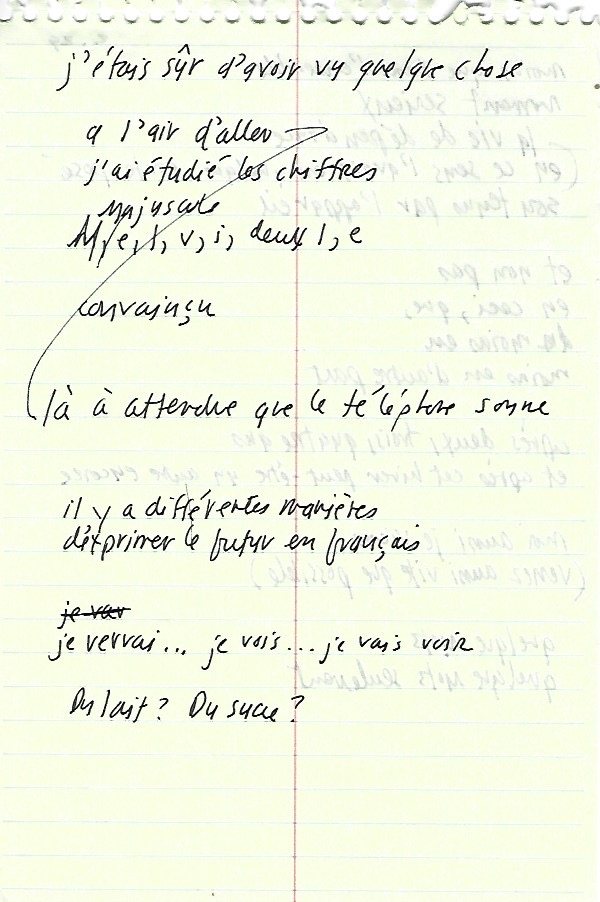 j'étais sûr d'avoir vu quelque chose
a l'air d'aller
j'ai étudié les chiffres
majuscule
M, e, l, v, i, deux l, e
convainçu
là à attendre que le téléphone sonne
il y a différentes manières
d'exprimer le futur en français
je verrai... je vois... je vais voir
Du lait ? Du sucre ?